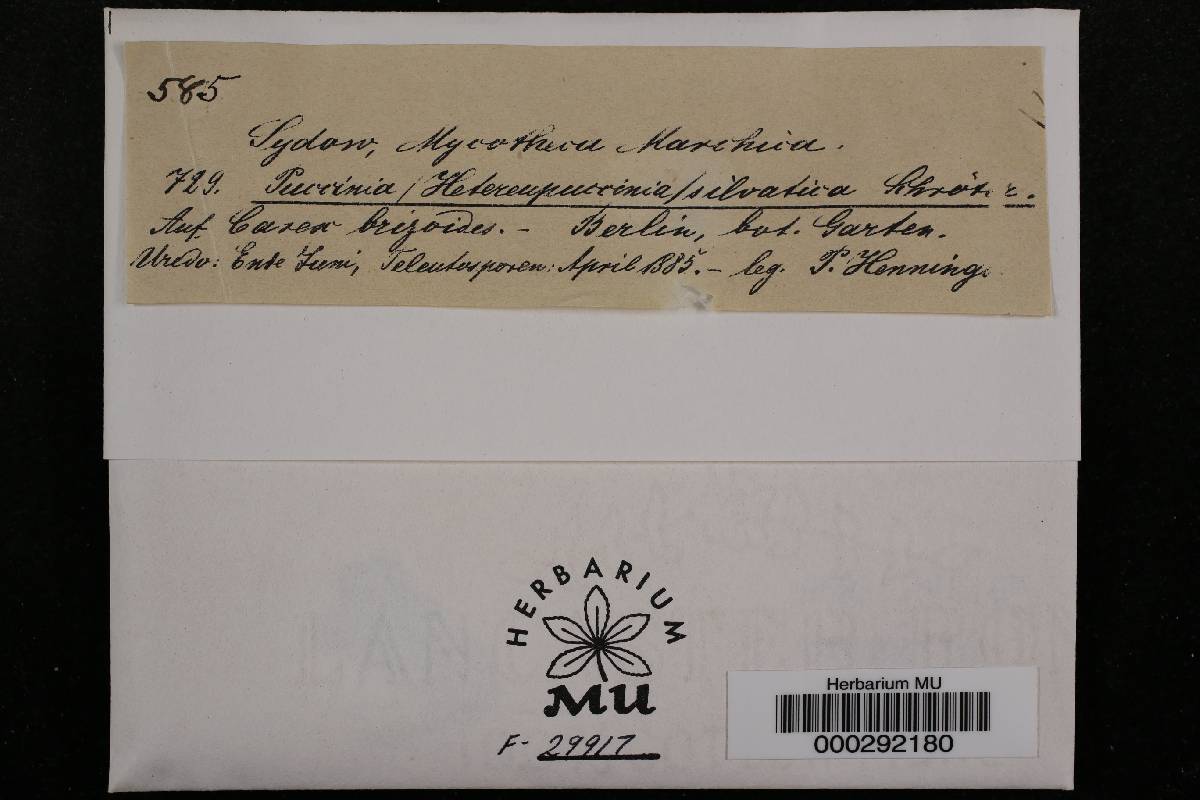 585
Sydow, Mycotheca Marchica.
729. Puccinia /Hetereupuccinia/ silvatica Schröter.
Auf Carex brizoides. - Berlin, bot. Garten.
Uredo: Ende Juni, Teleutosporen: April 1885. - leg. P. Hennings
HERBARIUM
MU
F- 29917
Herbarium MU
000292180